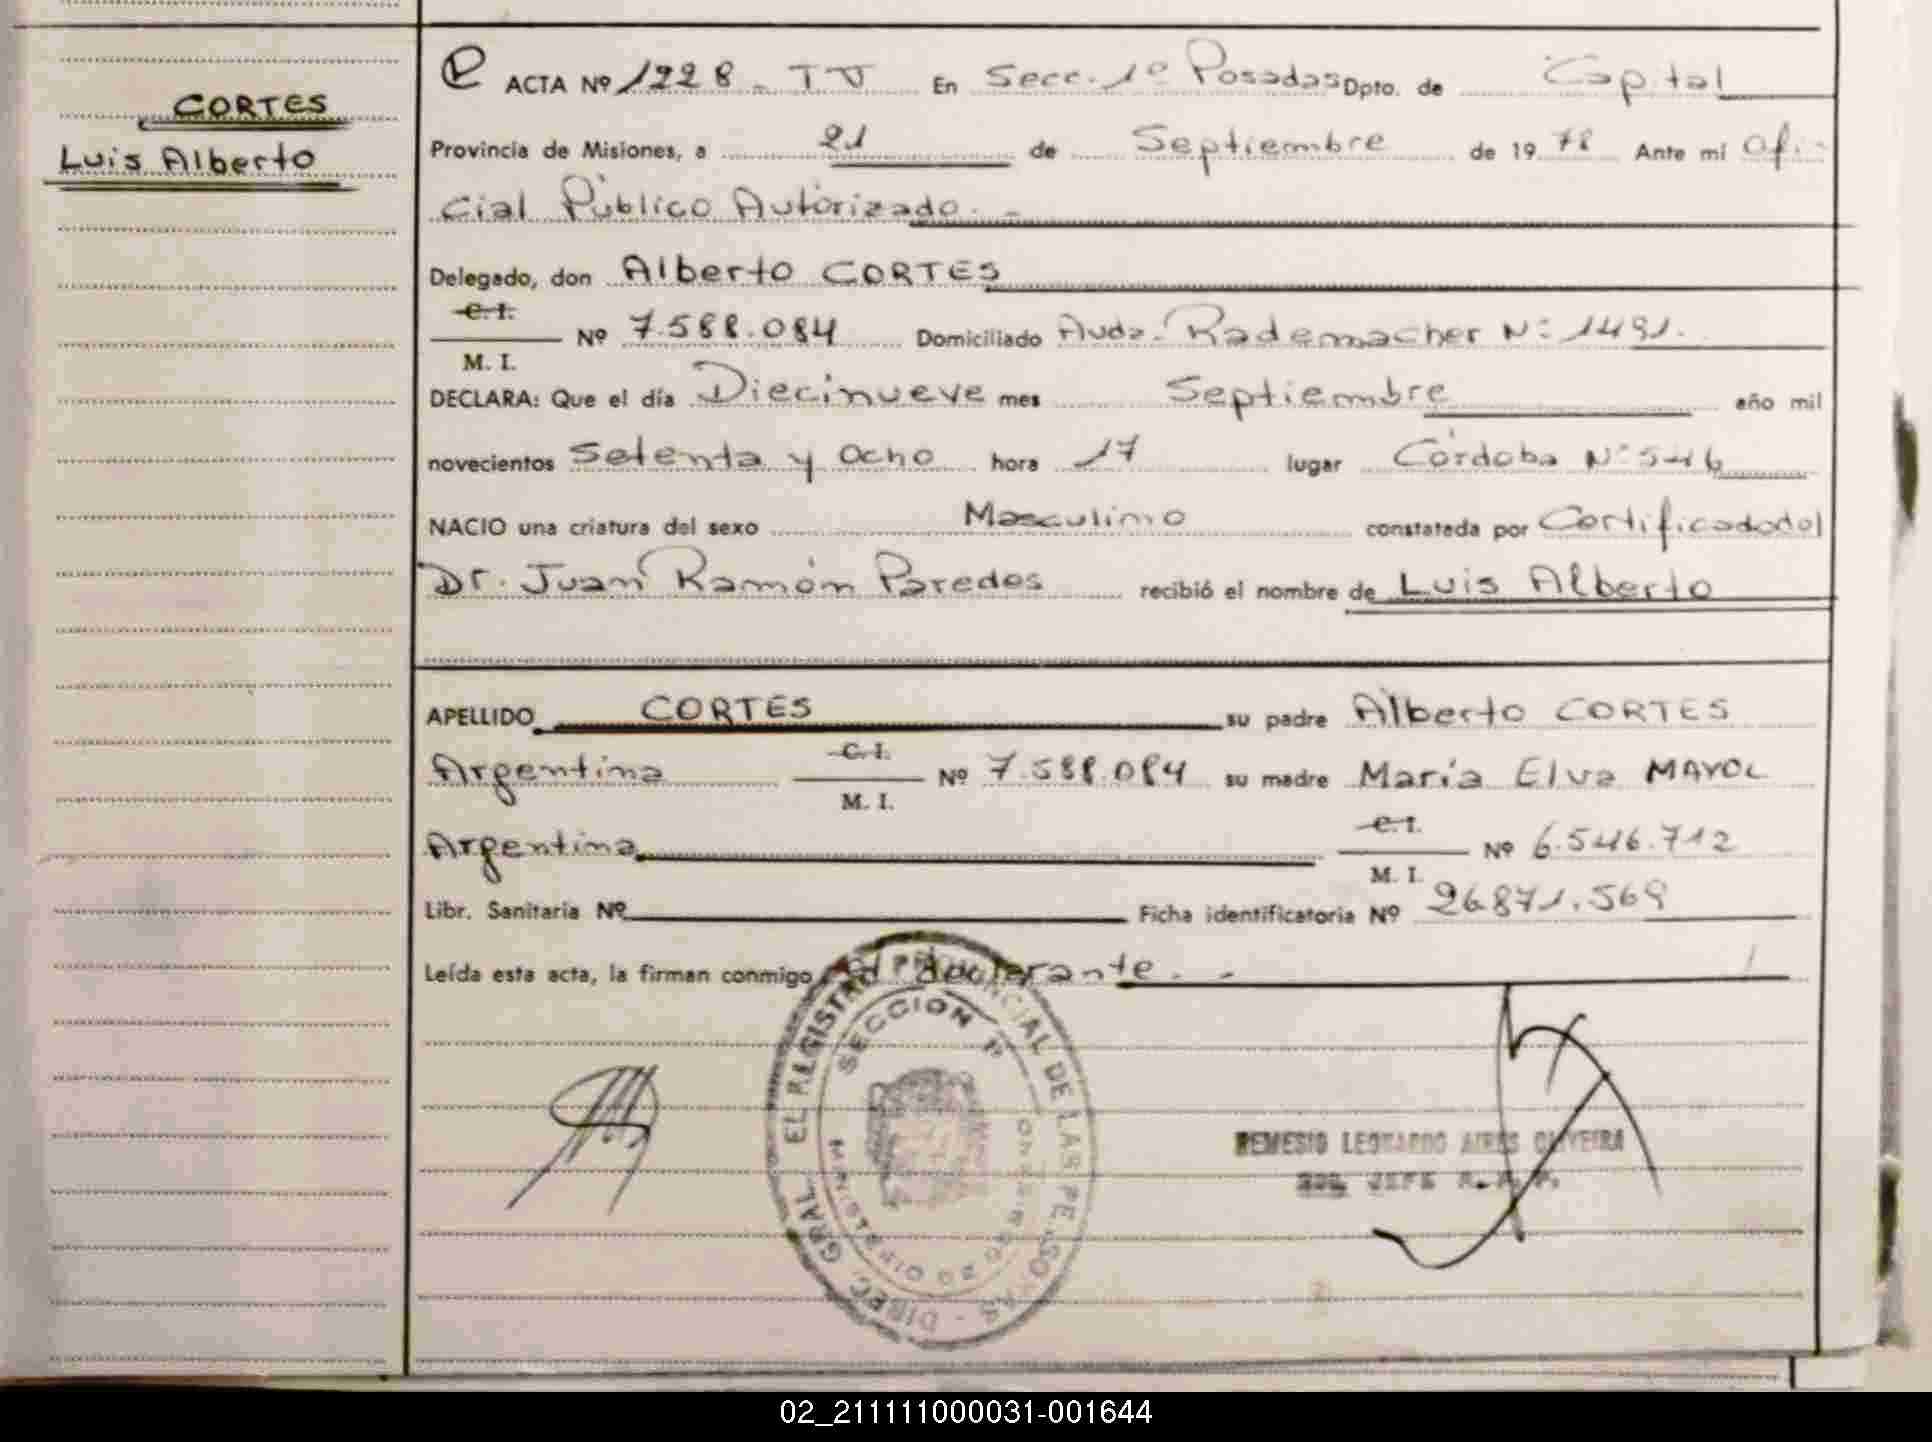 CORTES
Luis Alberto
ACTA Nº 1228 - TV En Secc. 1º Posadas Dpto. de Capital
Provincia de Misiones, a 21 de Septiembre de 1978 Ante mí Ofi-
cial Público Autorizado.-
Delegado, don Alberto CORTES
C. I.
Nº 7.588.084 Domiciliado Avda. Rademacher Nº 1491.
M. I.
DECLARA: Que el día Diecinueve mes Septiembre año mil
novecientos Setenta y Ocho hora 17 lugar Córdoba Nº 546
NACIO una criatura del sexo Masculino constatada por Certificado del
Dr. Juan Ramón Paredes recibió el nombre de Luis Alberto
APELLIDO CORTES su padre Alberto CORTES
C. I.
Argentina Nº 7.588.084 su madre María Elva MAYOL
M. I.
C. I.
Argentina Nº 6.546.712
M. I.
Libr. Sanitaria Nº Ficha identificatoria Nº 26.871.569
Leída esta acta, la firman conmigo el declarante.-
DIREC. GRAL. EL REGISTRO PROVINCIAL DE LAS PERSONAS
SECCION 1ª
MINISTERIO DE GOBIERNO
REMESIO LEONARDO AIRES OLIVEIRA
JEFE R. P. P.
02_211111000031-001644